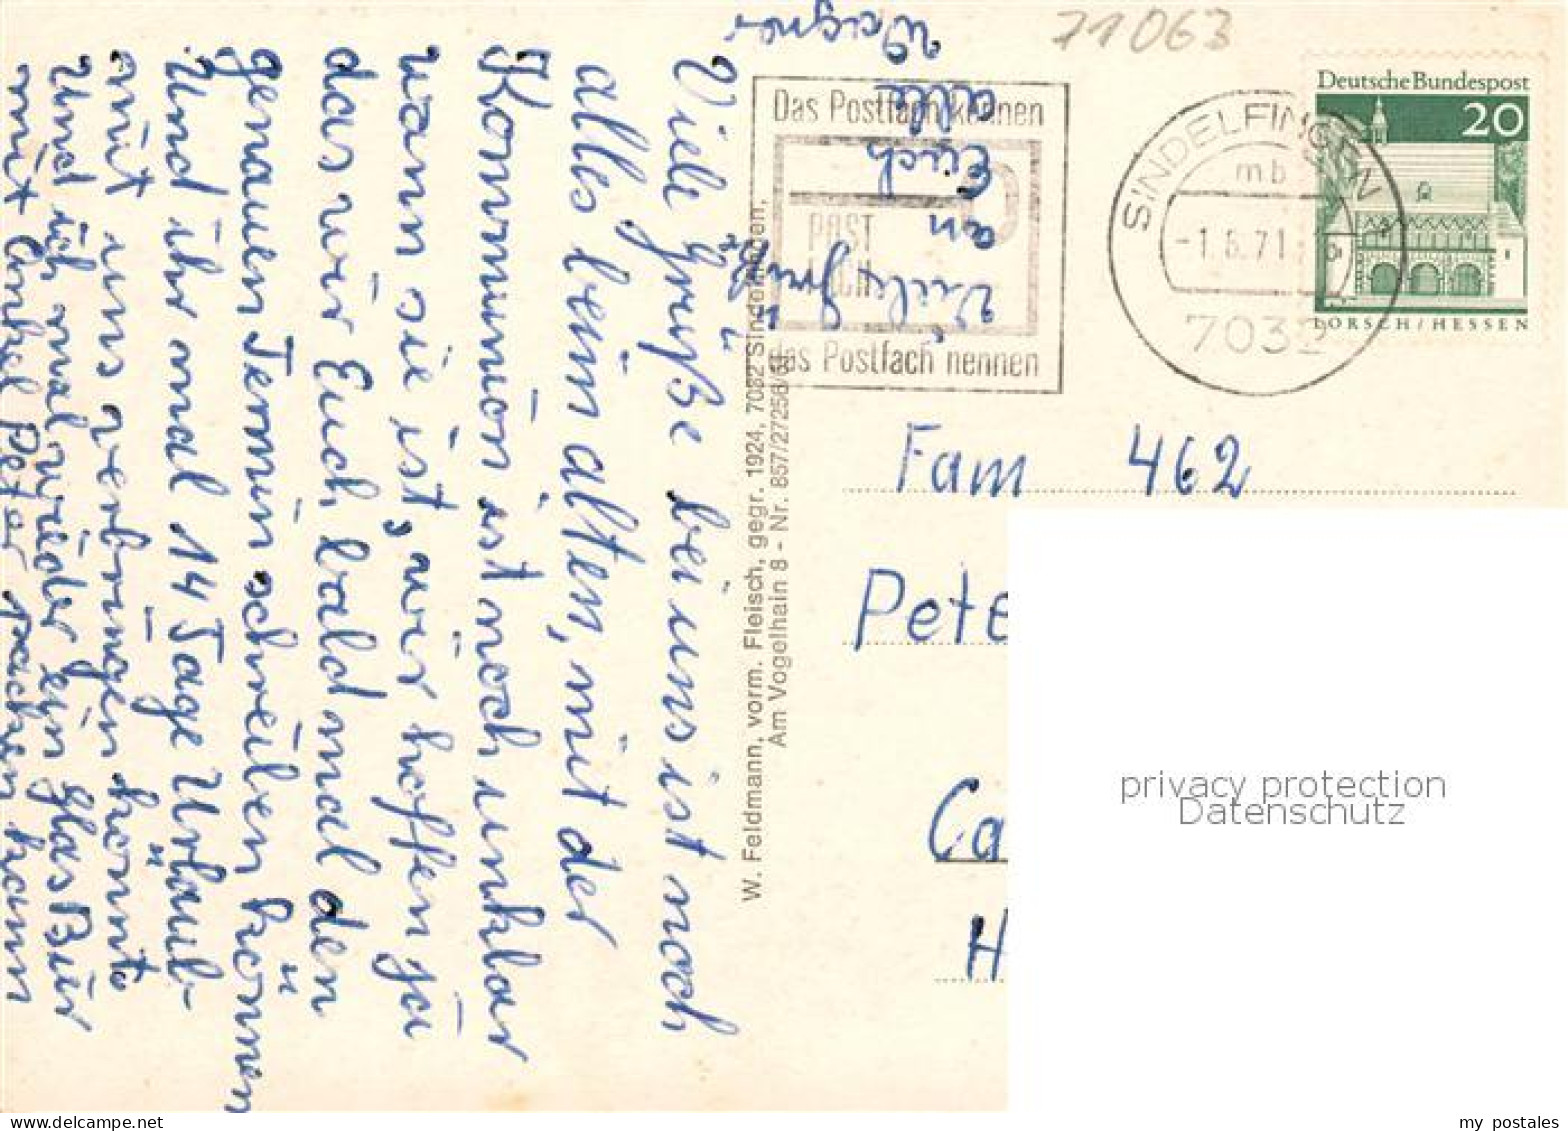 71063
Deutsche Bundespost
20
LORSCH/HESSEN
SINDELFINGEN
mb
7032
Das Postfach kennen
POST
das Postfach nennen
Viele Grüße bei uns ist noch
alles beim alten, mit der
Kommunion ist noch unklar
wann sie ist, wir hoffen ja
das wir Euch bald mal den
genauen Termin schreiben können
Und ihr mal 14 Tage Urlaub
mit uns verbringen könnt
Und ich mal wieder ein Glas Bier
mit Onkel Peter
kann
Viele Grüße
an
Euch
alle
Wagner
W. Feldmann, vorm. Fleisch, gegr. 1924, 7032 Sindelfingen,
Am Vogelhain 8 - Nr. 857/27256/
Fam 462
Pete
Ca
H
privacy protection
Datenschutz
my postales